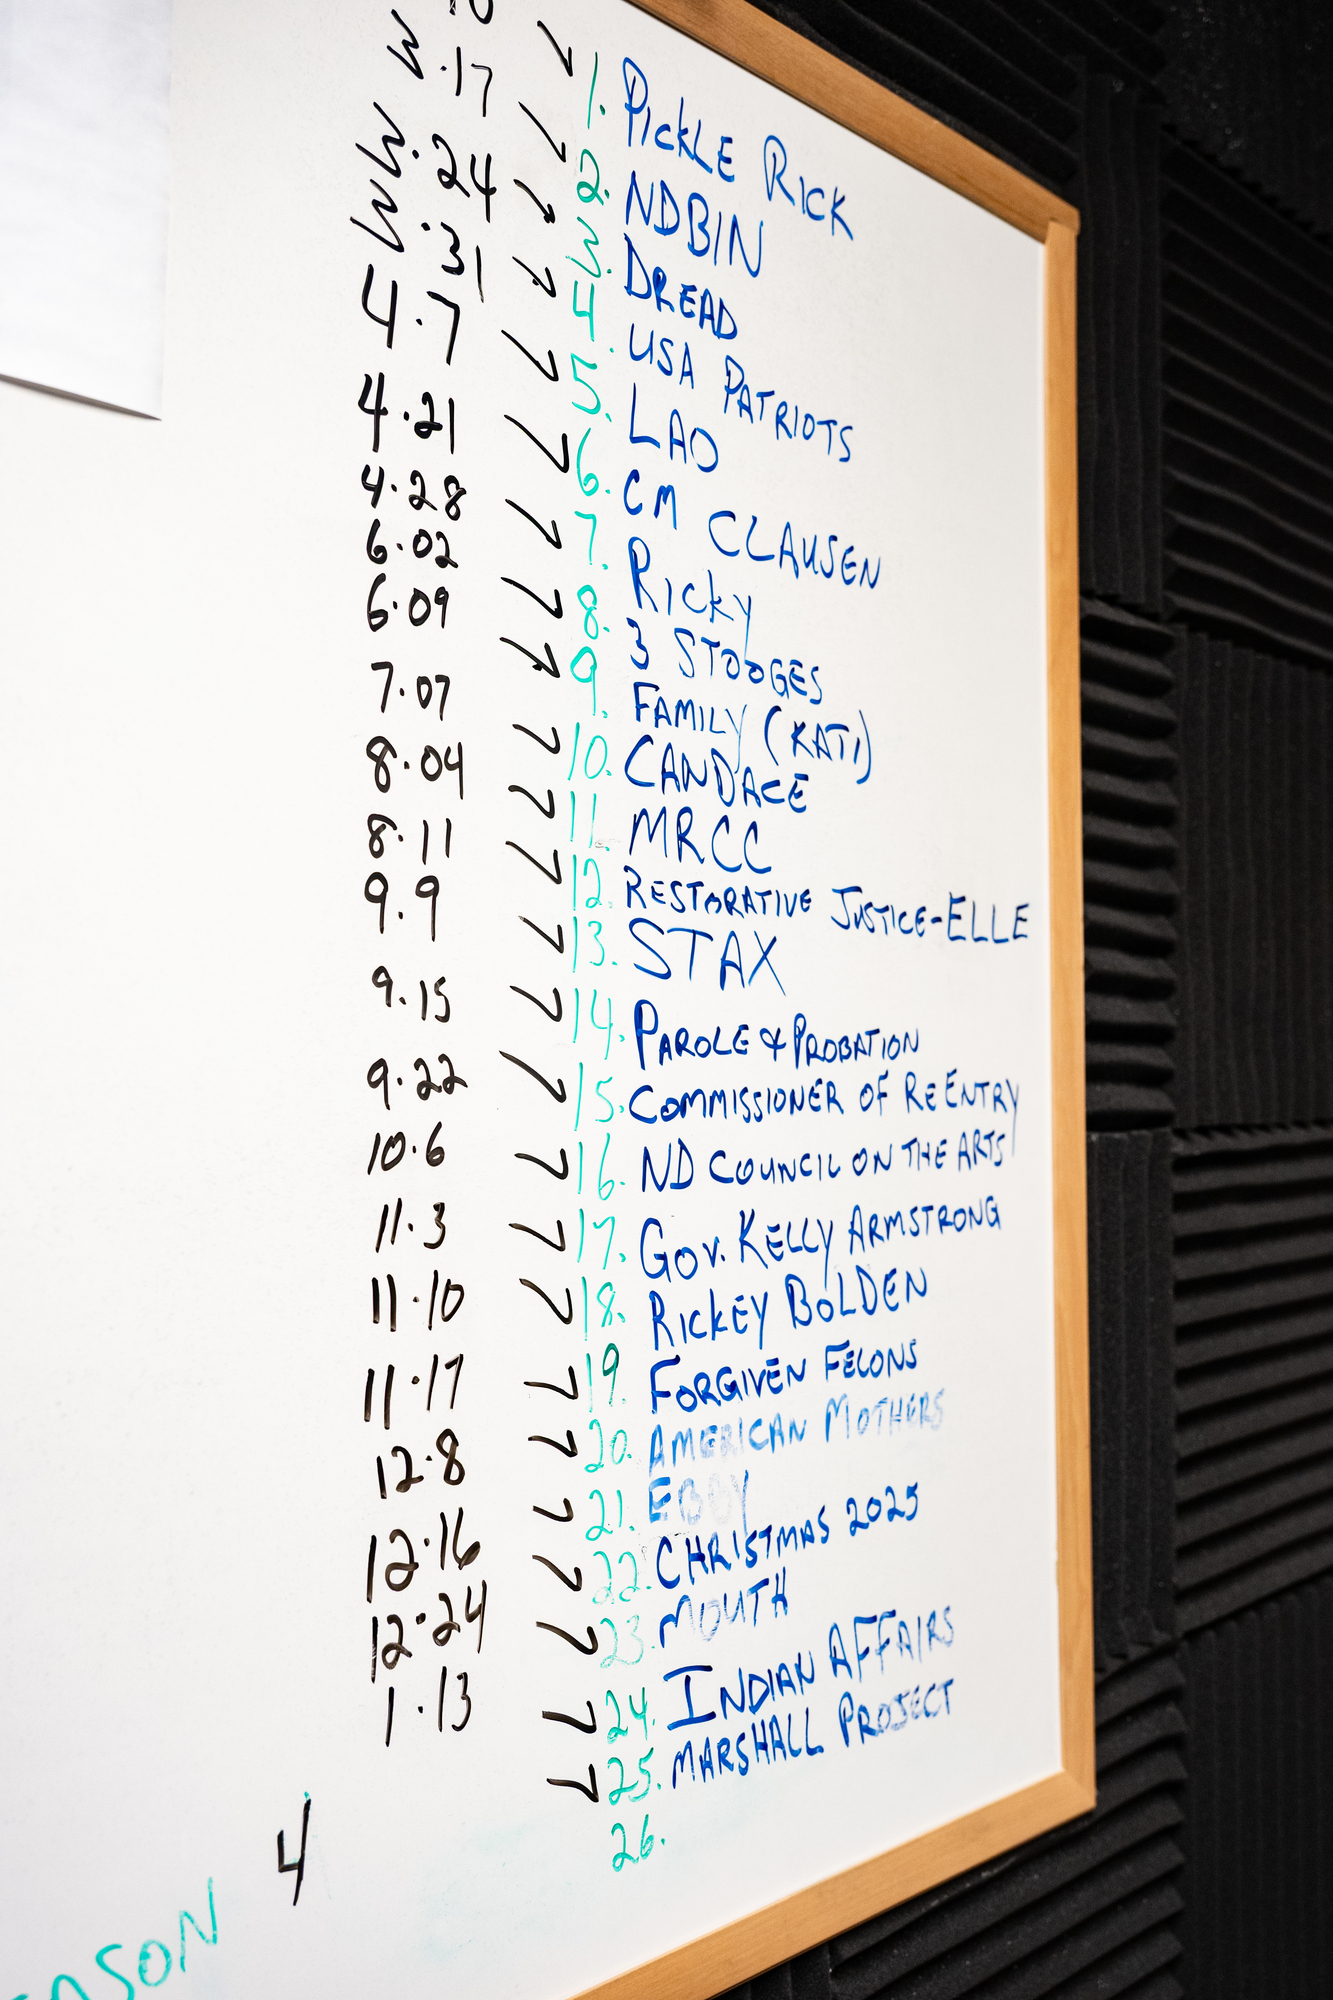 10
3.17
3.24
3.31
4.7
4.21
4.28
6.02
6.09
7.07
8.04
8.11
9.9
9.15
9.22
10.6
11.3
11.10
11.17
12.8
12.16
12.24
1.13
1. PICKLE RICK
2. NDBIN
3. DREAD
4. USA PATRIOTS
5. LAO
6. CM CLAUSEN
7. RICKY
8. 3 STOOGES
9. FAMILY (KATI)
10. CANDACE
11. MRCC
12. RESTORATIVE JUSTICE-ELLE
13. STAX
14. PAROLE & PROBATION
15. COMMISSIONER OF REENTRY
16. ND COUNCIL ON THE ARTS
17. GOV. KELLY ARMSTRONG
18. RICKEY BOLDEN
19. FORGIVEN FELONS
20. AMERICAN MOTHERS
21. EBBY
22. CHRISTMAS 2025
23. MOUTH
24. INDIAN AFFAIRS
25. MARSHALL PROJECT
26.
EASON 4